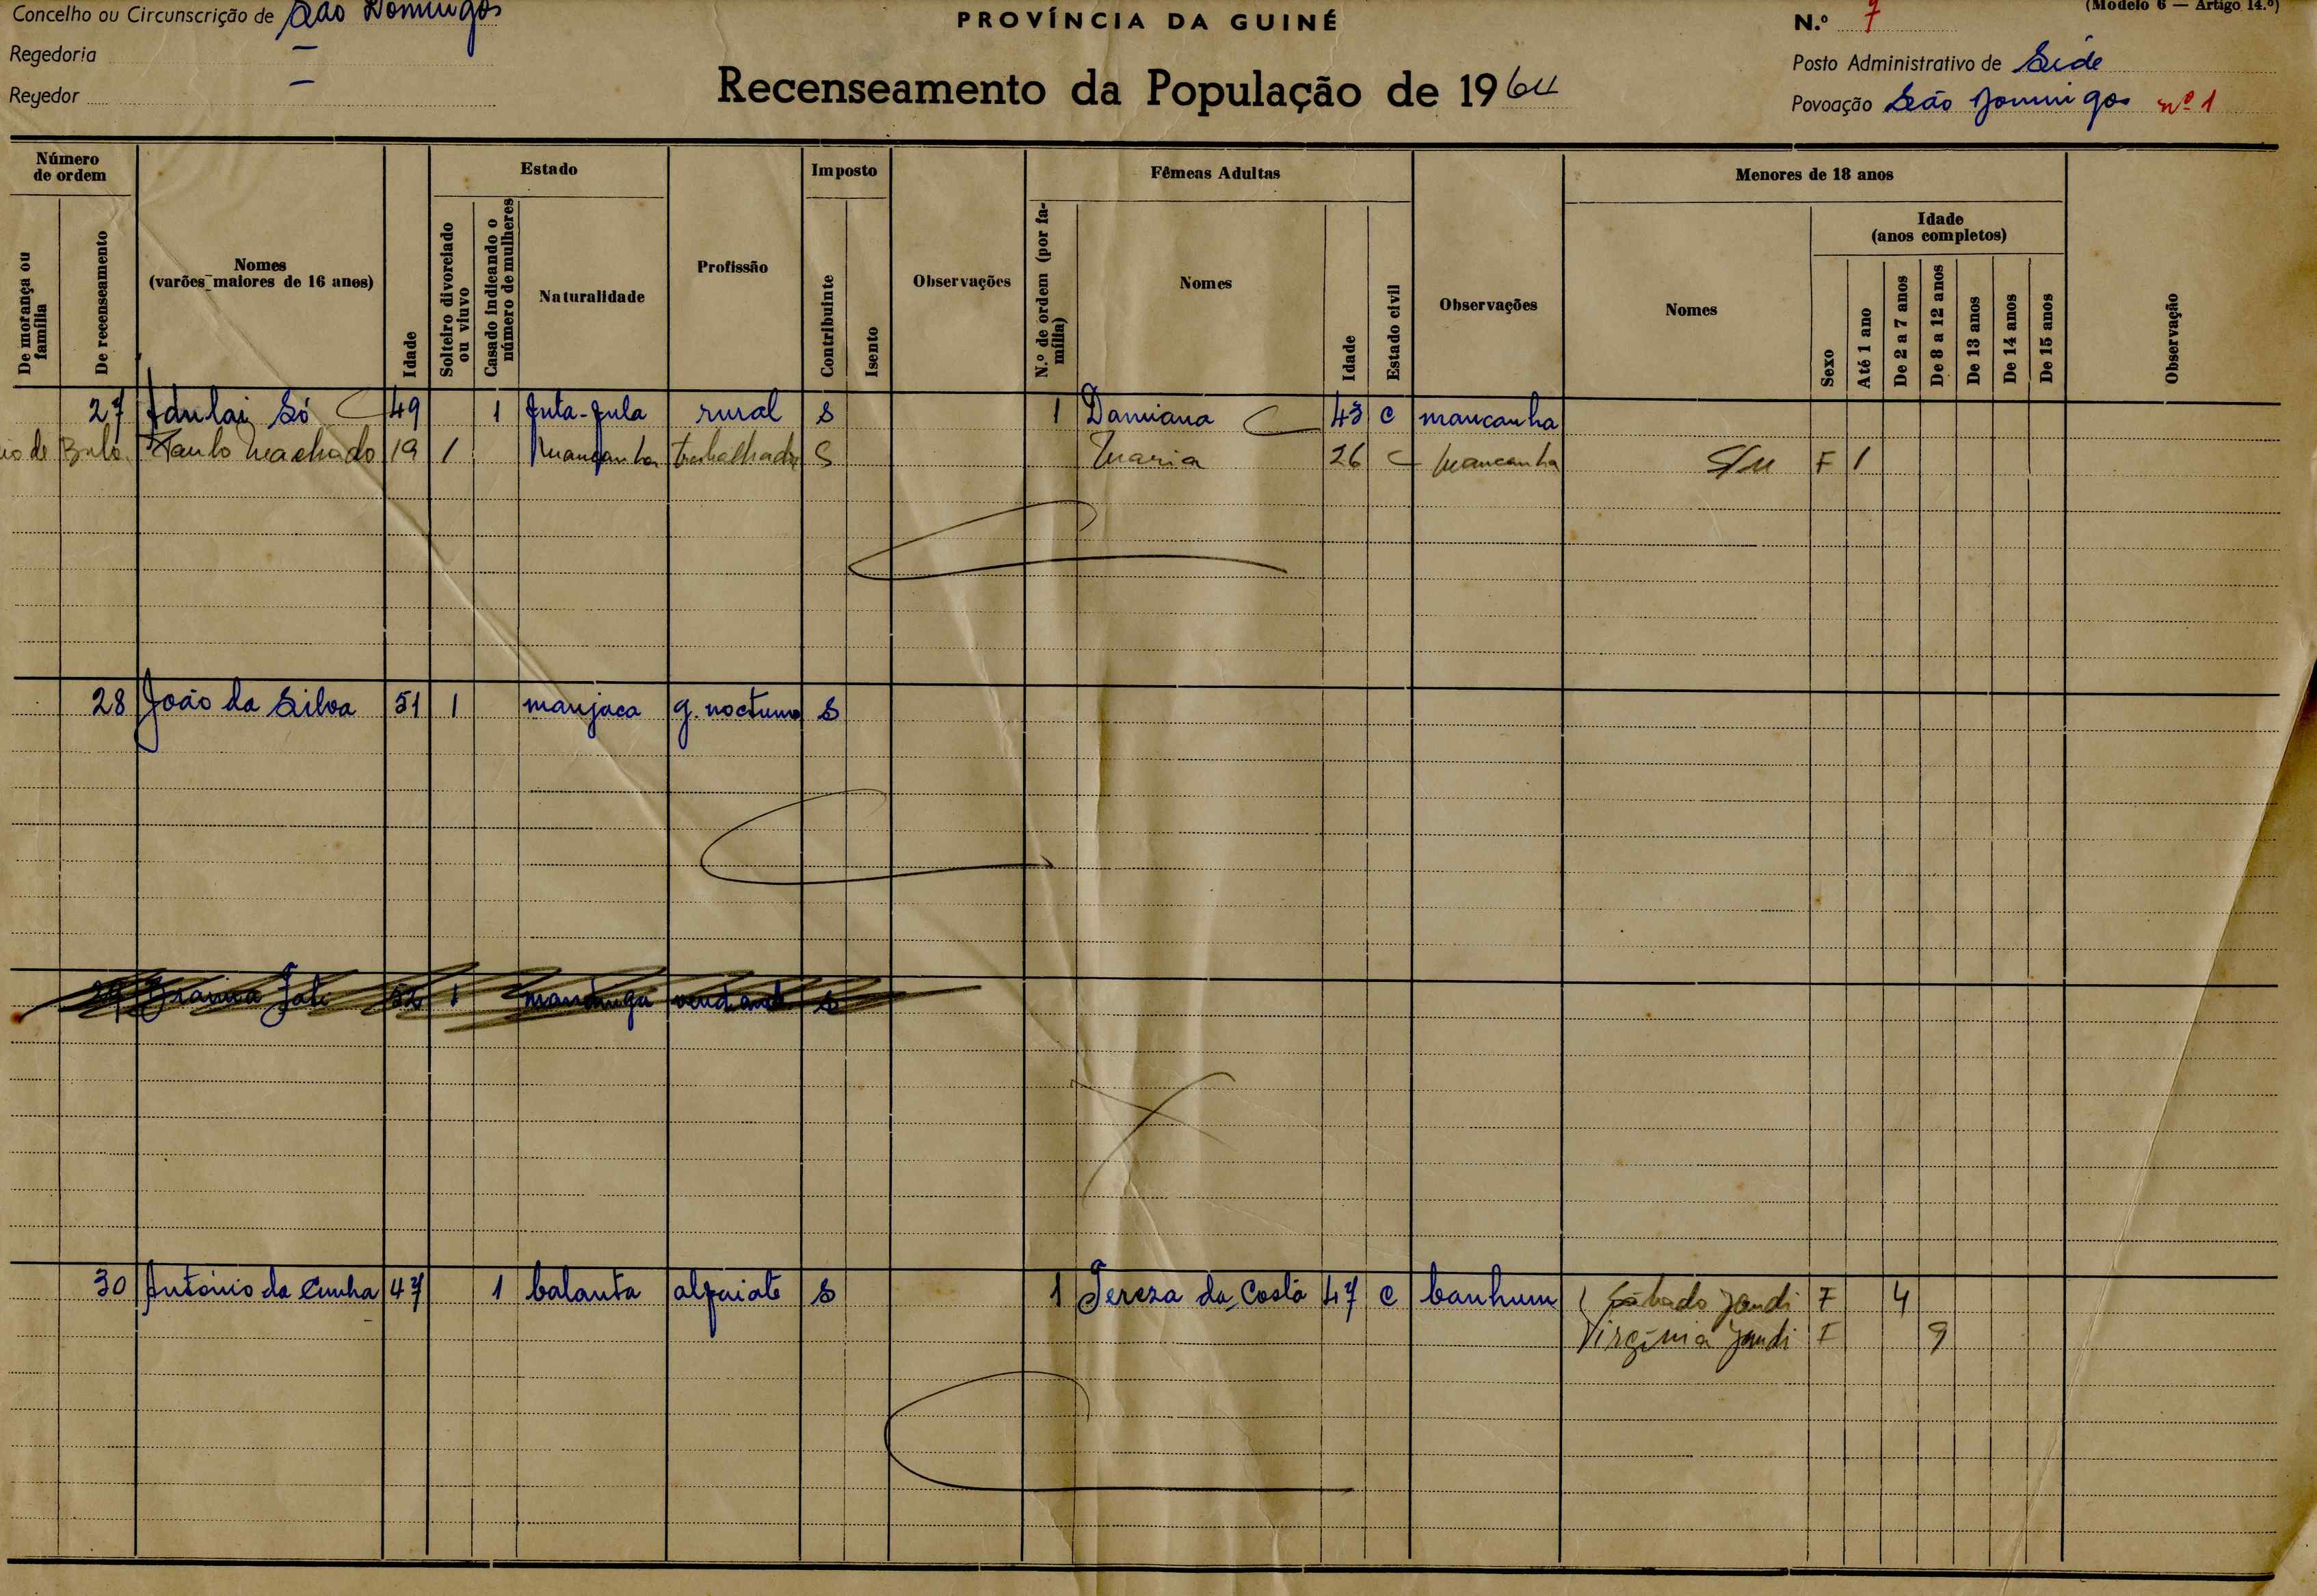 Concelho ou Circunscrição de São Domingos
Regedoria —
Regedor —
PROVÍNCIA DA GUINÉ
Recenseamento da População de 1964
(Modelo 6 — Artigo 14.º)
N.º 7
Posto Administrativo de Séde
Povoação São Domingos nº 1
Número de ordem
De morança ou família
De recenseamento
Nomes
(varões maiores de 16 anos)
Idade
Estado
Solteiro divorciado ou viuvo
Casado indicando o número de mulheres
Naturalidade
Profissão
Imposto
Contribuinte
Isento
Observações
Fêmeas Adultas
N.º de ordem (por família)
Nomes
Idade
Estado civil
Observações
Menores de 18 anos
Nomes
Sexo
Idade
(anos completos)
Até 1 ano
De 2 a 7 anos
De 8 a 12 anos
De 13 anos
De 14 anos
De 15 anos
Observação
27 Adulai Só 49 1 futa-fula rural S 1 Damiana 43 c mancanha
de Bula Paulo Machado 19 1 Mancanha trabalhador S Maria 26 c Mancanha F 1
28 João da Silva 51 1 manjaca g. nocturno S
52 1 mandinga S
30 António da Cunha 47 1 balanta alfaiate S 1 Tereza da Costa 47 c banhum Sábado Jandi F 4
Virgínia Jandi F 9